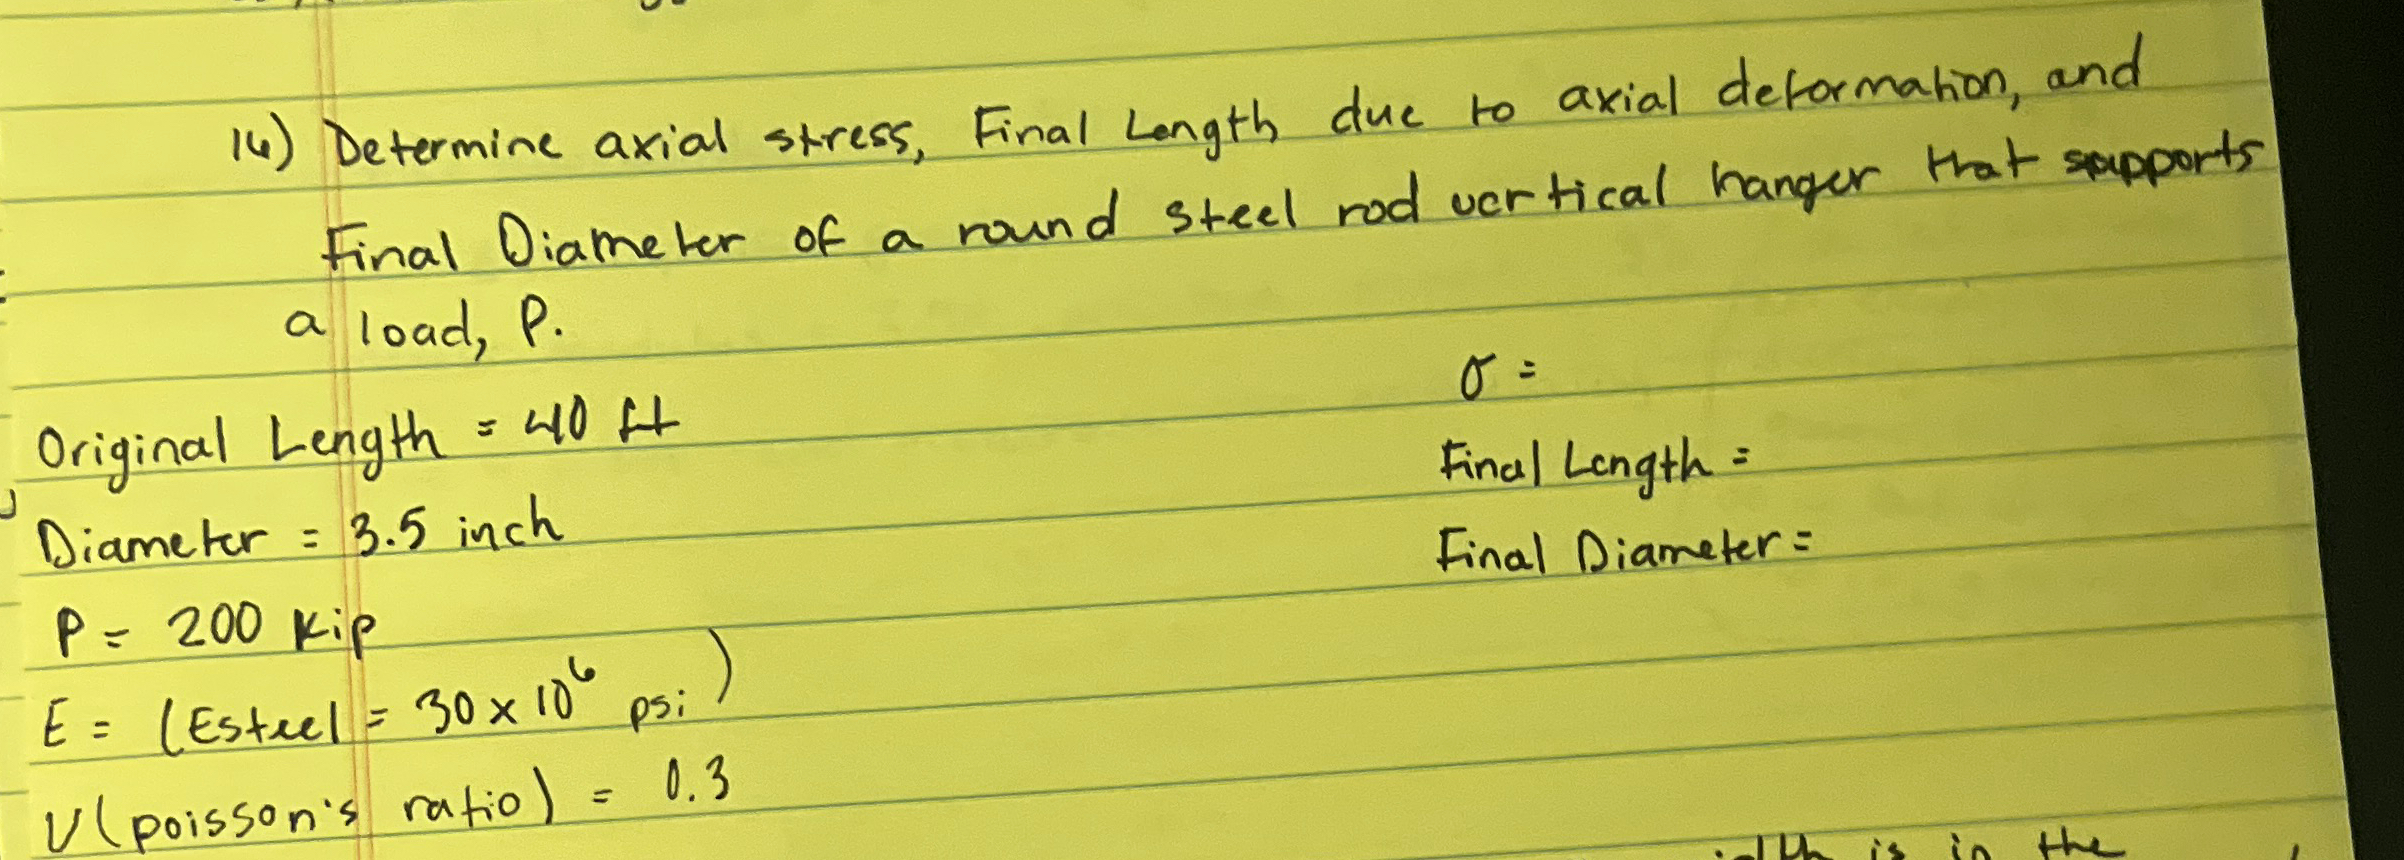 16) Determine axial stress, Final Length due to axial deformation, and
Final Diameter of a round steel rod vertical hanger that supports
a load, P.
σ =
Original Length = 40 ft
Final Length =
Diameter = 3.5 inch
Final Diameter =
P = 200 Kip
E = (Esteel = 30 x 10⁶ psi)
V (poisson's ratio) = 0.3
is in the